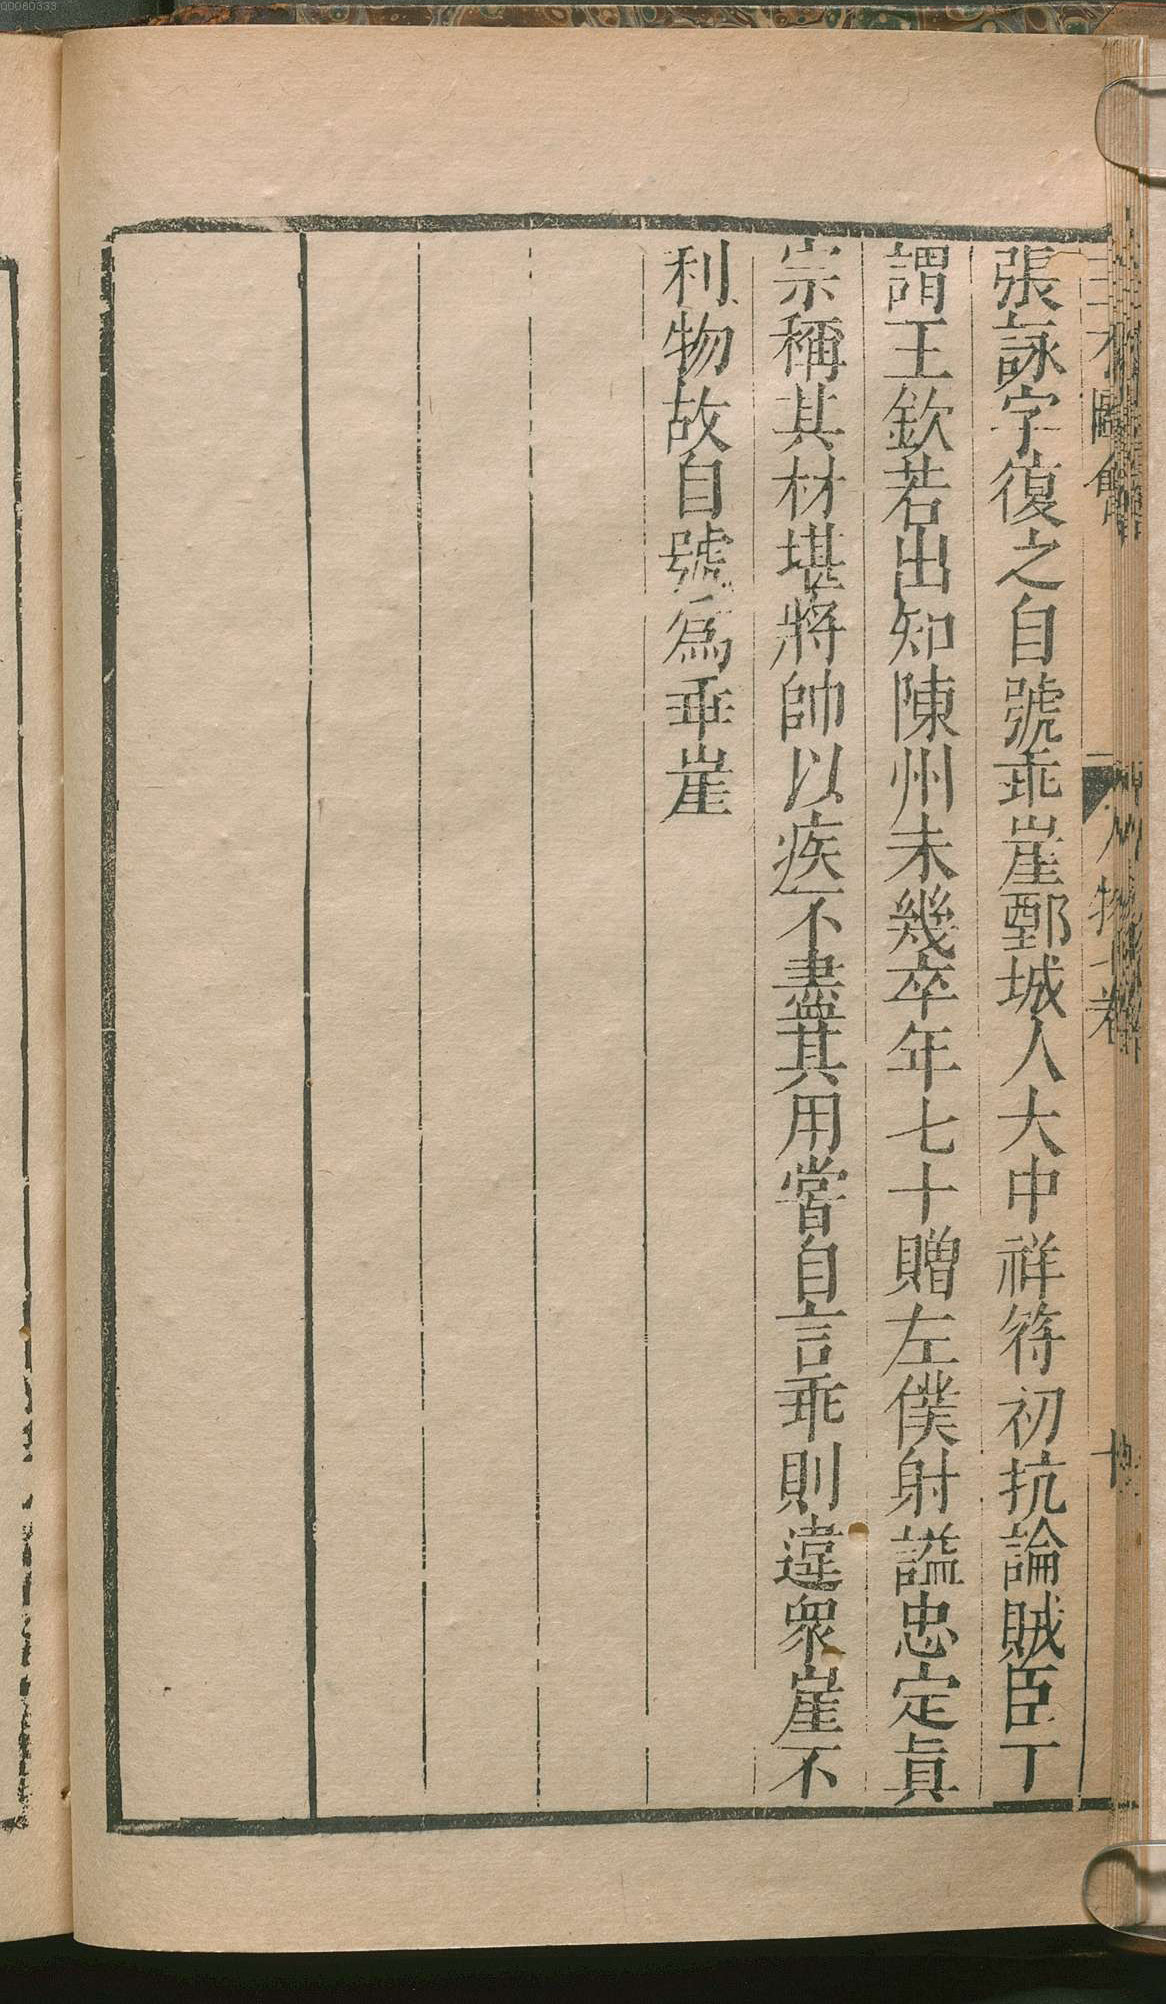 張詠字復之自號乖崖鄄城人大中祥符初抗論賊臣丁
謂王欽若出知陳州未幾卒年七十贈左僕射謚忠定眞
宗稱其材堪將帥以疾不盡其用嘗自言乖則違衆崖不
利物故自號爲乖崖
00060333